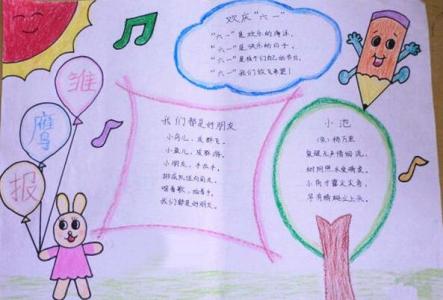 雏
鹰
报
欢庆“六一”
“六一”是欢乐的海洋，
“六一”是快乐的日子，
“六一”是孩子们自己的节日，
“六一”我们放飞希望！
我们都是好朋友
小鸟儿，成群飞。
小鱼儿，成群游。
小朋友，手拉手，
排成队往前走。
唱着歌，拍着手，
我们都是好朋友。
小池
（宋）杨万里
泉眼无声惜细流，
树阴照水爱晴柔。
小荷才露尖尖角，
早有蜻蜓立上头。